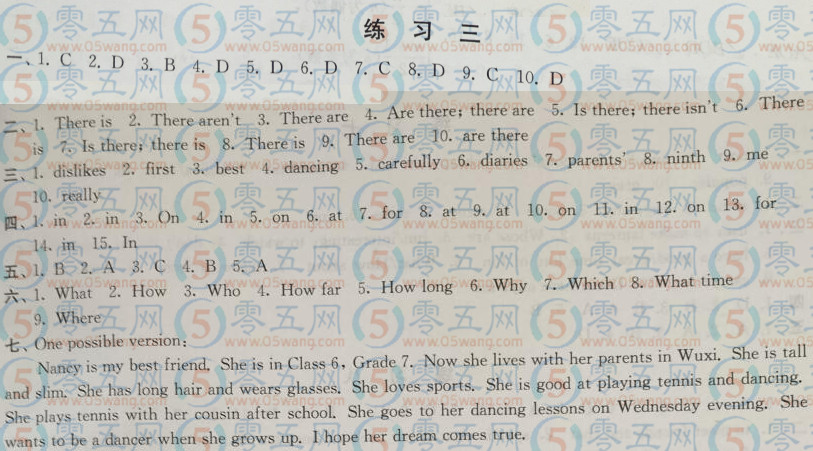 练 习 三
一、1. C 2. D 3. B 4. D 5. D 6. D 7. C 8. D 9. C 10. D
二、1. There is 2. There aren't 3. There are 4. Are there; there are 5. Is there; there isn't 6. There
is 7. Is there; there is 8. There is 9. There are 10. are there
三、1. dislikes 2. first 3. best 4. dancing 5. carefully 6. diaries 7. parents' 8. ninth 9. me
10. really
四、1. in 2. in 3. On 4. in 5. on 6. at 7. for 8. at 9. at 10. on 11. in 12. on 13. for
14. in 15. In
五、1. B 2. A 3. C 4. B 5. A
六、1. What 2. How 3. Who 4. How far 5. How long 6. Why 7. Which 8. What time
9. Where
七、One possible version:
Nancy is my best friend. She is in Class 6, Grade 7. Now she lives with her parents in Wuxi. She is tall
and slim. She has long hair and wears glasses. She loves sports. She is good at playing tennis and dancing.
She plays tennis with her cousin after school. She goes to her dancing lessons on Wednesday evening. She
wants to be a dancer when she grows up. I hope her dream comes true.
零五网
www.05wang.com